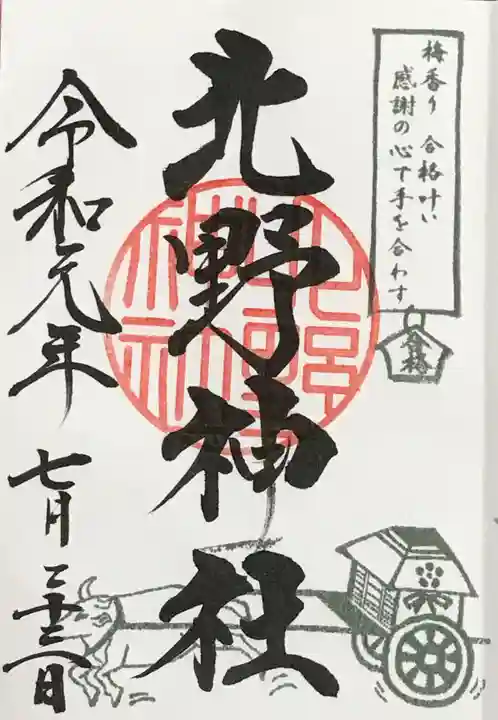 梅香り 合格叶い
感謝の心で手を合わす
合格
北野神社
北野神社
令和元年 七月二十三日